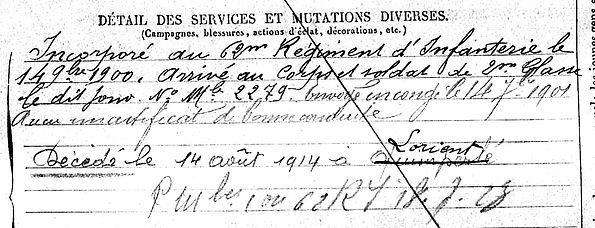 DÉTAIL DES SERVICES ET MUTATIONS DIVERSES.
(Campagnes, blessures, actions d'éclat, décorations, etc.)
Incorporé au 62me Régiment d'Infanterie le
14 9bre 1900. Arrivé au Corps et soldat de 2me Classe
le dit jour. No Mle 2279. envoyé en congé le 14 1901
a reçu un certificat de bonne conduite
Lorient
Décédé le 14 août 1914 à Quimperlé